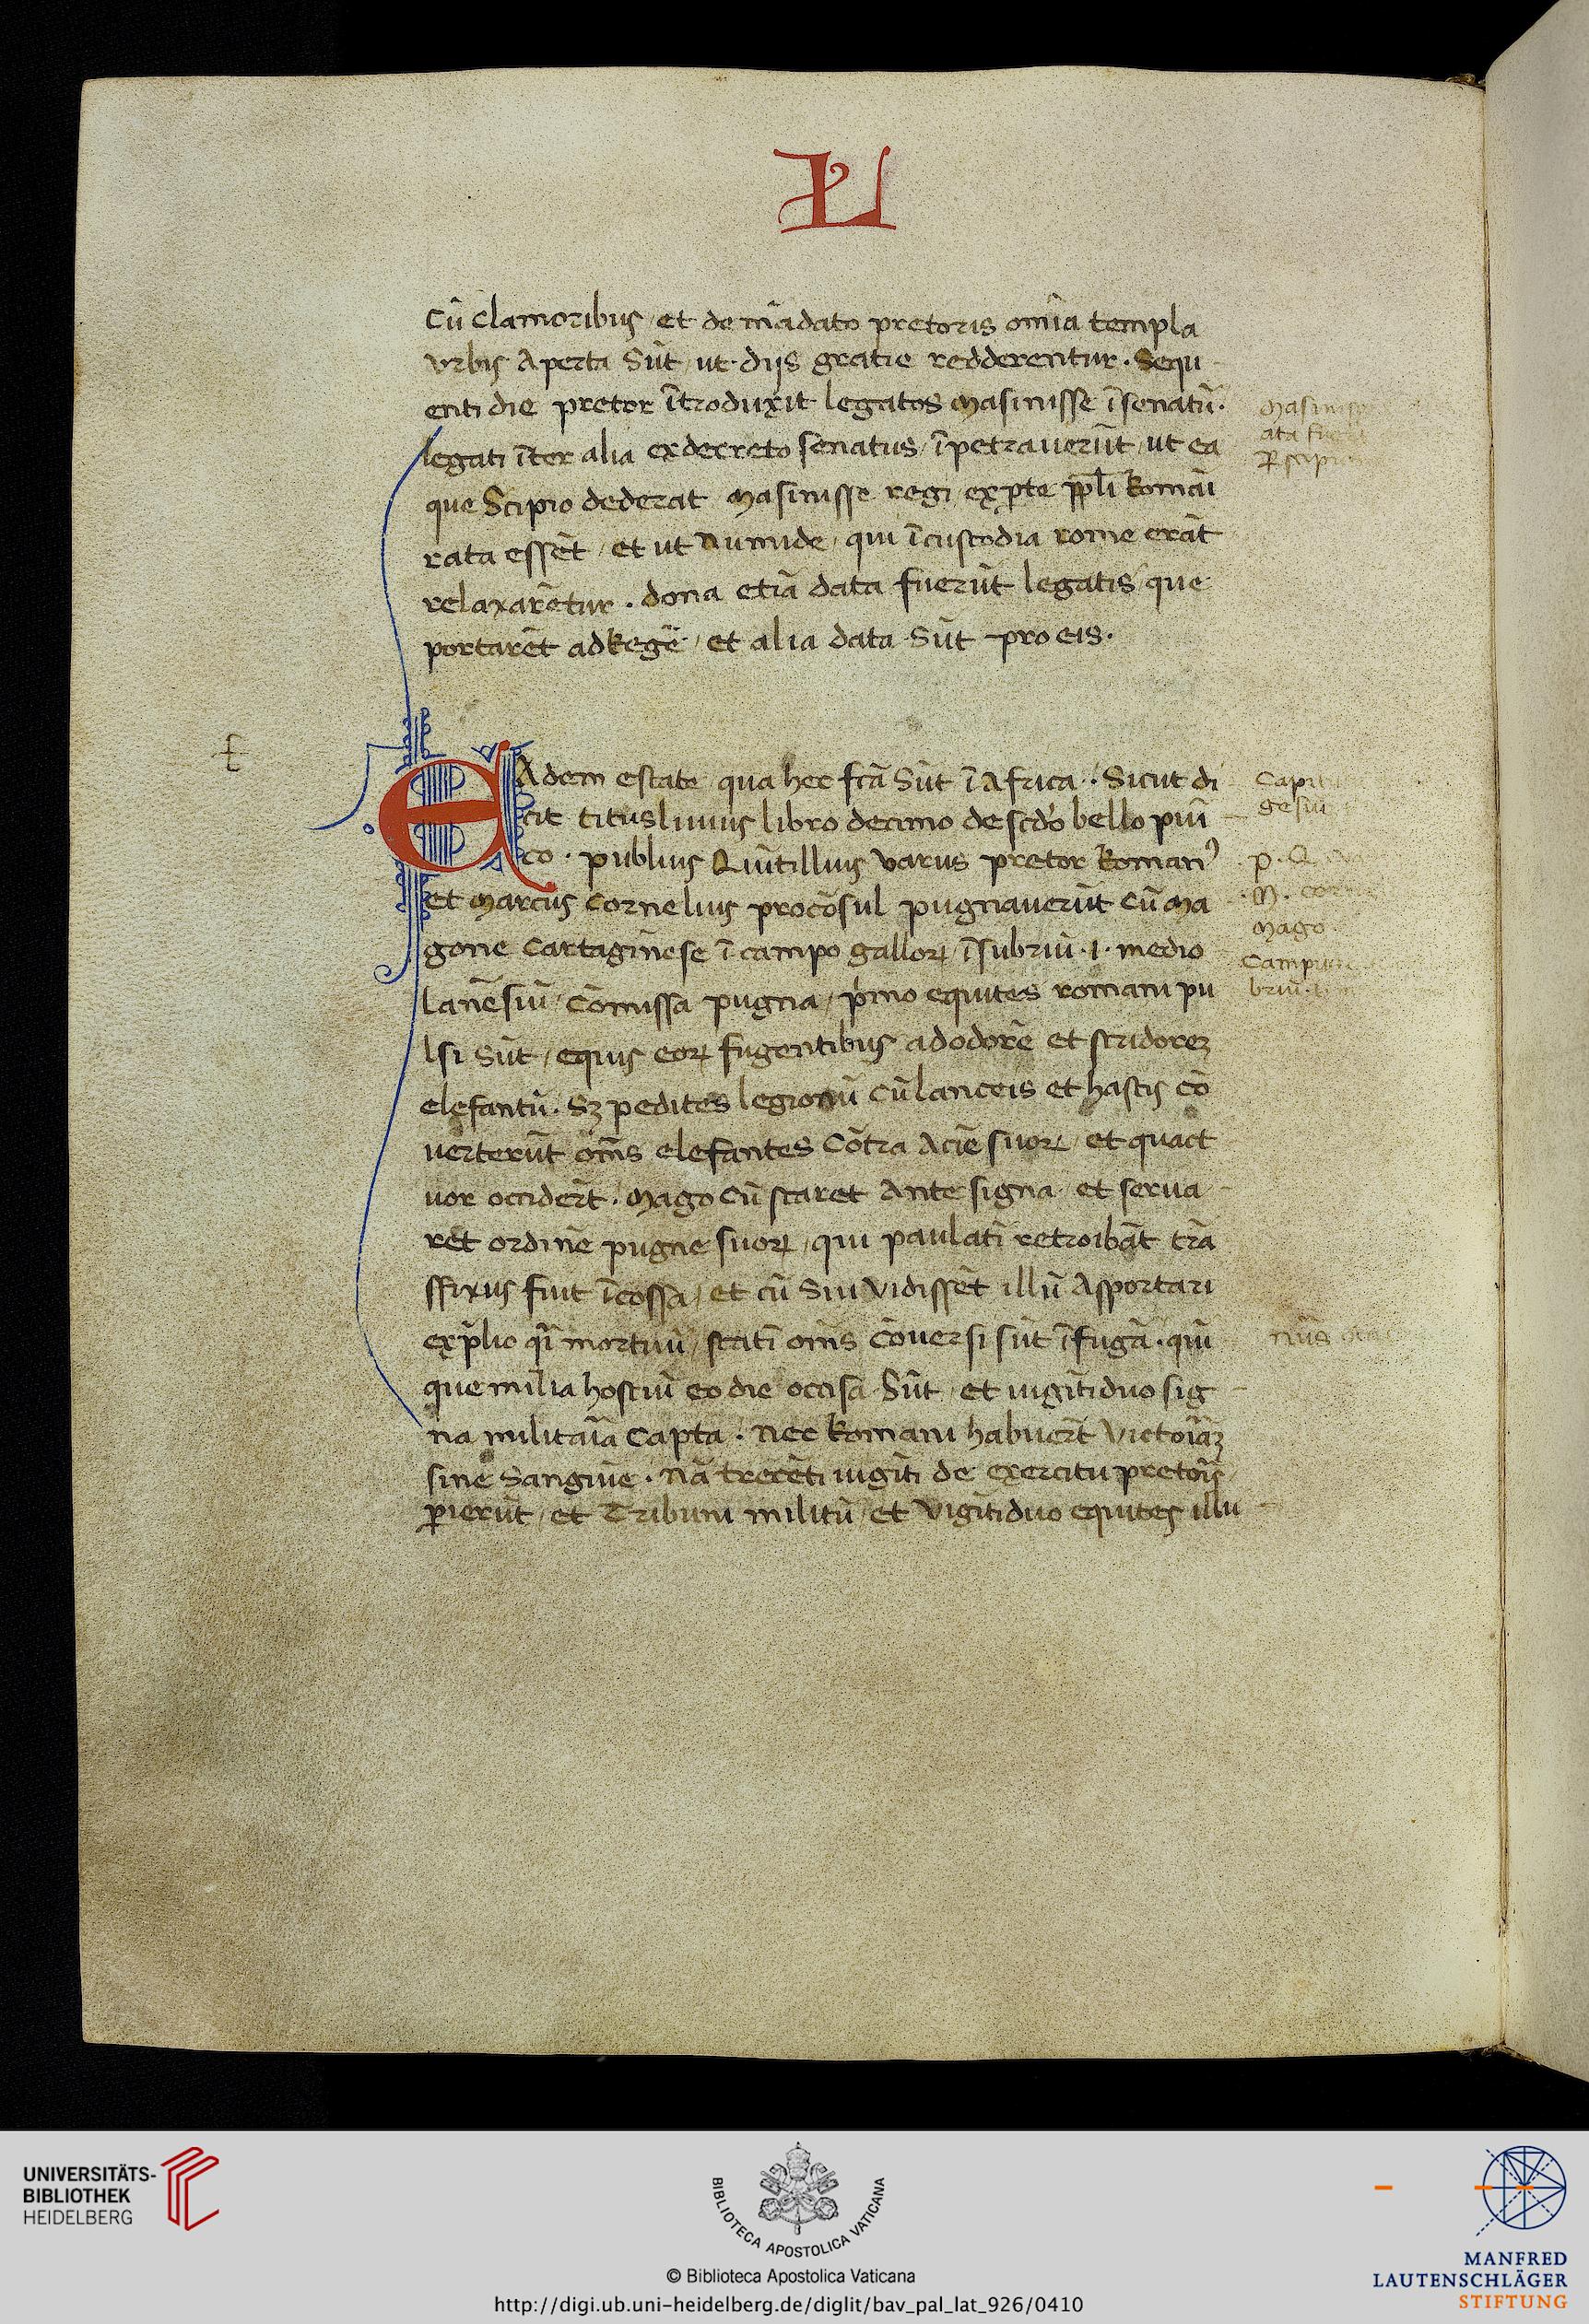 LI
Cū clamoribus / et de mādato pretoris om̄ia templa
vrbis aperta sūt / ut diis gratie redderentur . Sequ
enti die pretor ītroduxit legatos masinisse īsenatū .
legati īter alia ex decreto senatus / īpetrauerūt / ut ea
que Scipio dederat masinisse regi ex p̱te pp̄li Romāi
rata essēt / et ut Numide / qui īcustodia rome erāt
relaxarētur . dona etiā data fuerūt legatis que
portarēt ad Regē / et alia data sūt pro eis .
Masinisse
ata fue
ꝑ scipi
t
EAdem estate qua hec fc̄a sūt ī Africa . Sicut di
cit titus liuius libro decimo de sc̄do bello puī
co . publius Quītillius varus pretor Romanꝰ
et marcus Cornelius procōsul pugnauerūt cū ma
gone Cartaginēse ī campo galloꝝ īsubriū .i. medio
lanēsiū / Cōmissa pugna / pͥmo equites romani pu
lsi sūt / equis eoꝝ fugentibus ad odorē et stridoreꝫ
elefantū . Sꝫ pedites legionū cū lanceis et hastis cō
uerterūt om̄s elefantes Cōtra aciē suoꝝ / et quact
uor occider̄t . Mago cū staret ante signa / et serua
ret ordinē pugne suoꝝ / qui paulatī retroibāt trā
sfixus fuit īcossa / et cū sui vidissēt illū asportari
ex p̄lio q̄i mortuū / statī om̄s cōuersi sūt īfugā . quī
que milia hostiū eo die occisa sūt / et uigīti duo sig
na militaīa capta . Nec Romani habuer̄t victoīaꝫ
sine sanguīe . Nā trecēti uigīti de exercitu pretoīs
ꝑierūt / et Tribuni militū / et vigīti duo equites illu
Capi
gesiu
P. Q.
M. cor
Mago
Campu
briū .i.
UNIVERSITÄTS-
BIBLIOTHEK
HEIDELBERG
BIBLIOTECA APOSTOLICA VATICANA
© Biblioteca Apostolica Vaticana
http://digi.ub.uni-heidelberg.de/diglit/bav_pal_lat_926/0410
MANFRED
LAUTENSCHLÄGER
STIFTUNG